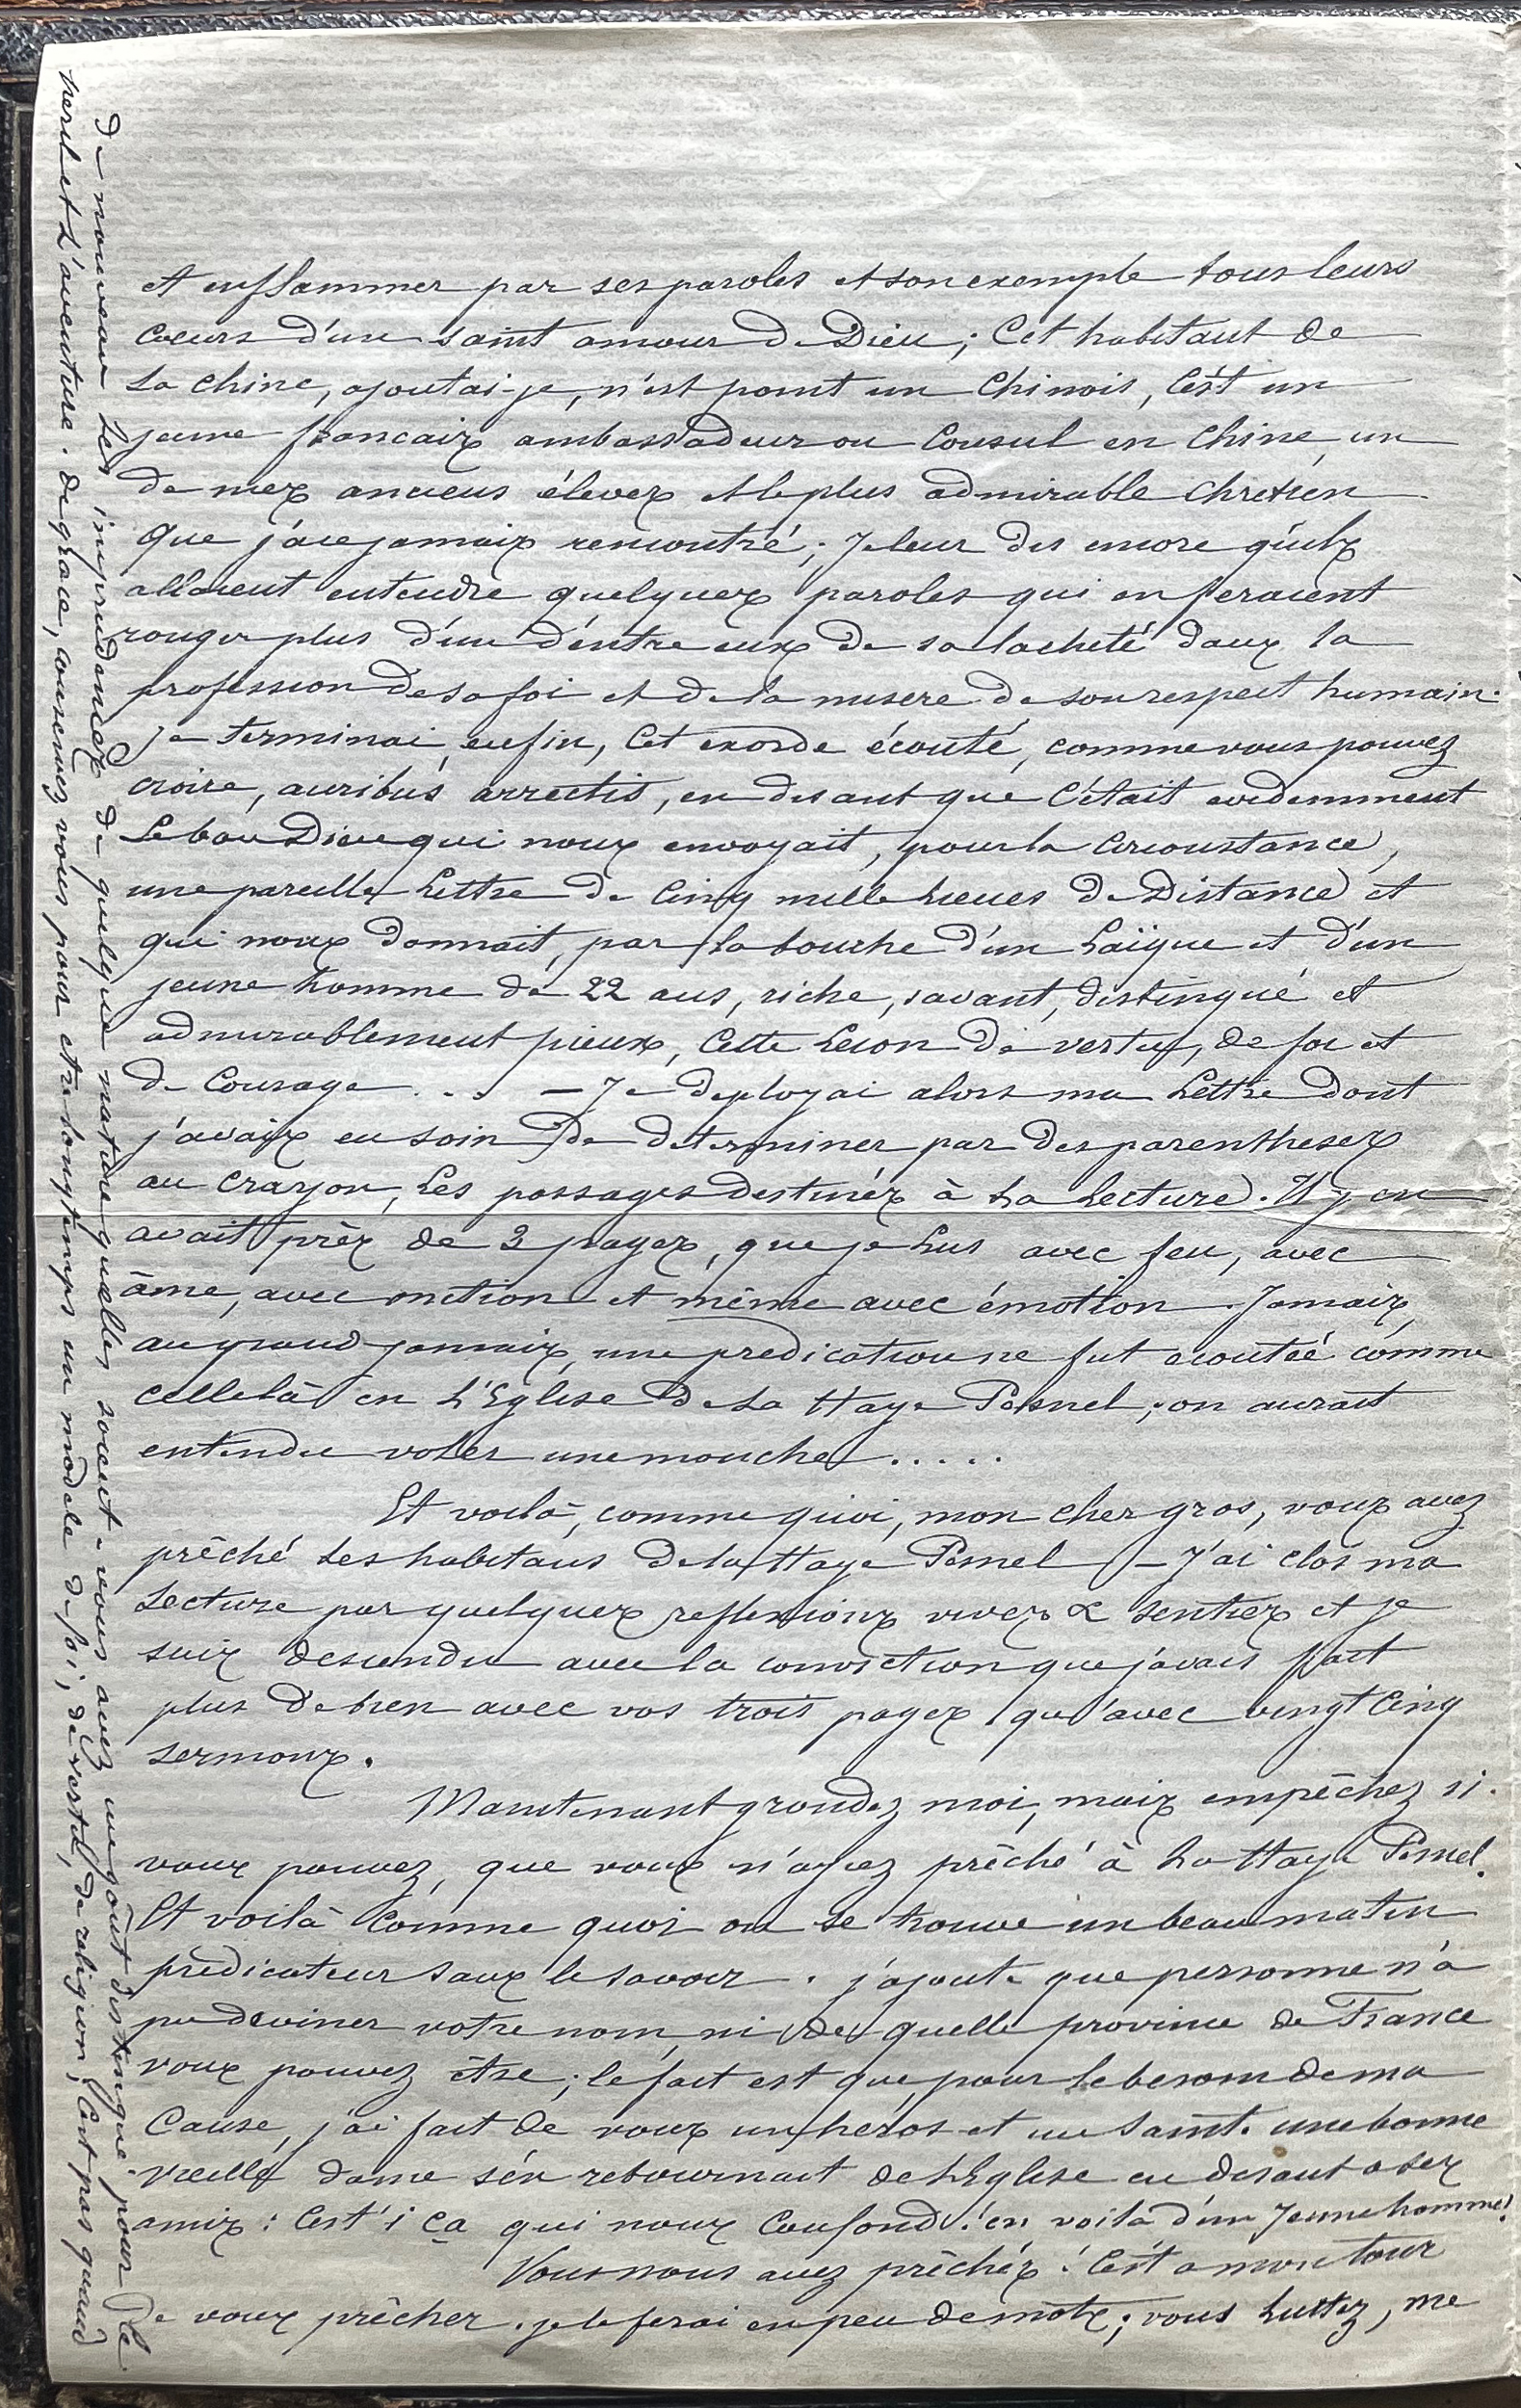 et enflammer par ses paroles et son exemple tous leurs
cœurs d'un saint amour de Dieu ; Cet habitant de
la Chine, ajoutai-je, n'est point un Chinois, C'est un
jeune francaix ambassadeur ou Consul en Chine, un
de mex anciens élevex et le plus admirable Chretien
que j'aie jamaix rencontré ; Je leur dis encore qu'ilx
allaient entendre quelquex paroles qui en feraient
rougir plus d'un d'entre eux de sa lacheté danx la
profession de sa foi et de la misere de son respect humain.
je terminai, enfin, Cet exorde écouté, comme vous pouvez
croire, auribus arrectis, en disant que C'était evidemment
Le bon Dieu qui noux envoyait, pour la Circonstance,
une pareille Lettre de Cinq mille Lieues de Distance et
qui noux donnait, par la bouche d'un Laïque et d'un
jeune homme de 22 ans, riche, savant, distingué et
admirablement pieux, Cette Lecon de vertu, de foi et
de Courage . . . . — Je deployai alors ma Lettre dont
j'avaix eu soin de determiner par des parenthesex
au Crayon, Les passages destinéx à La Lecture. Il y en
avait prèx de 3 pagex, que je Lus avec feu, avec
âme, avec onction et même avec émotion. Jamaix,
au grand jamaix, une predication ne fut ecoutée comme
celle là en L'Eglise de La Haye Pesnel ; on aurait
entendu voler une mouche . . . . .
Et voilà, comme quoi, mon cher gros, voux avez
prêché Les habitans de La Haye Pesnel — J'ai clos ma
Lecture par quelquex reflexionx vivex & sentiex et je
suix descendu avec la conviction que j'avais fait
plus de bien avec vos trois pagex qu'avec vingt Cinq
sermonx.
Maintenant grondez moi, maix empêchez si
voux pouvez, que voux n'ayiez prêché à La Haye Pesnel.
Et voilà Comme quoi on se trouve un beau matin
predicateur sanx le savoir. j'ajoute que personne n'a
pu deviner votre nom, ni de quelle province de France
voux pouvez être ; le fait est que, pour Le besoin de ma
Cause, j'ai fait de voux un heros et un Saint. une bonne
vieille dame s'en retournait de L'Eglise en disant a sex
amix : C'est'i ça qui noux Confond ! en voilà d'un Jeune homme !
Vous nous avez prêchéx ! C'est a mon tour
de voux prêcher. je le ferai en peu de motx ; vous Luttez, me
de nouveau Les imprudencex de quelque nature qu'elles soient. vous avez un goût distingué pour le
peril et L'aventure. De grace, conservez vous pour etre longtemps un modele de foi, de vertu, de religion ; C'est pas quand